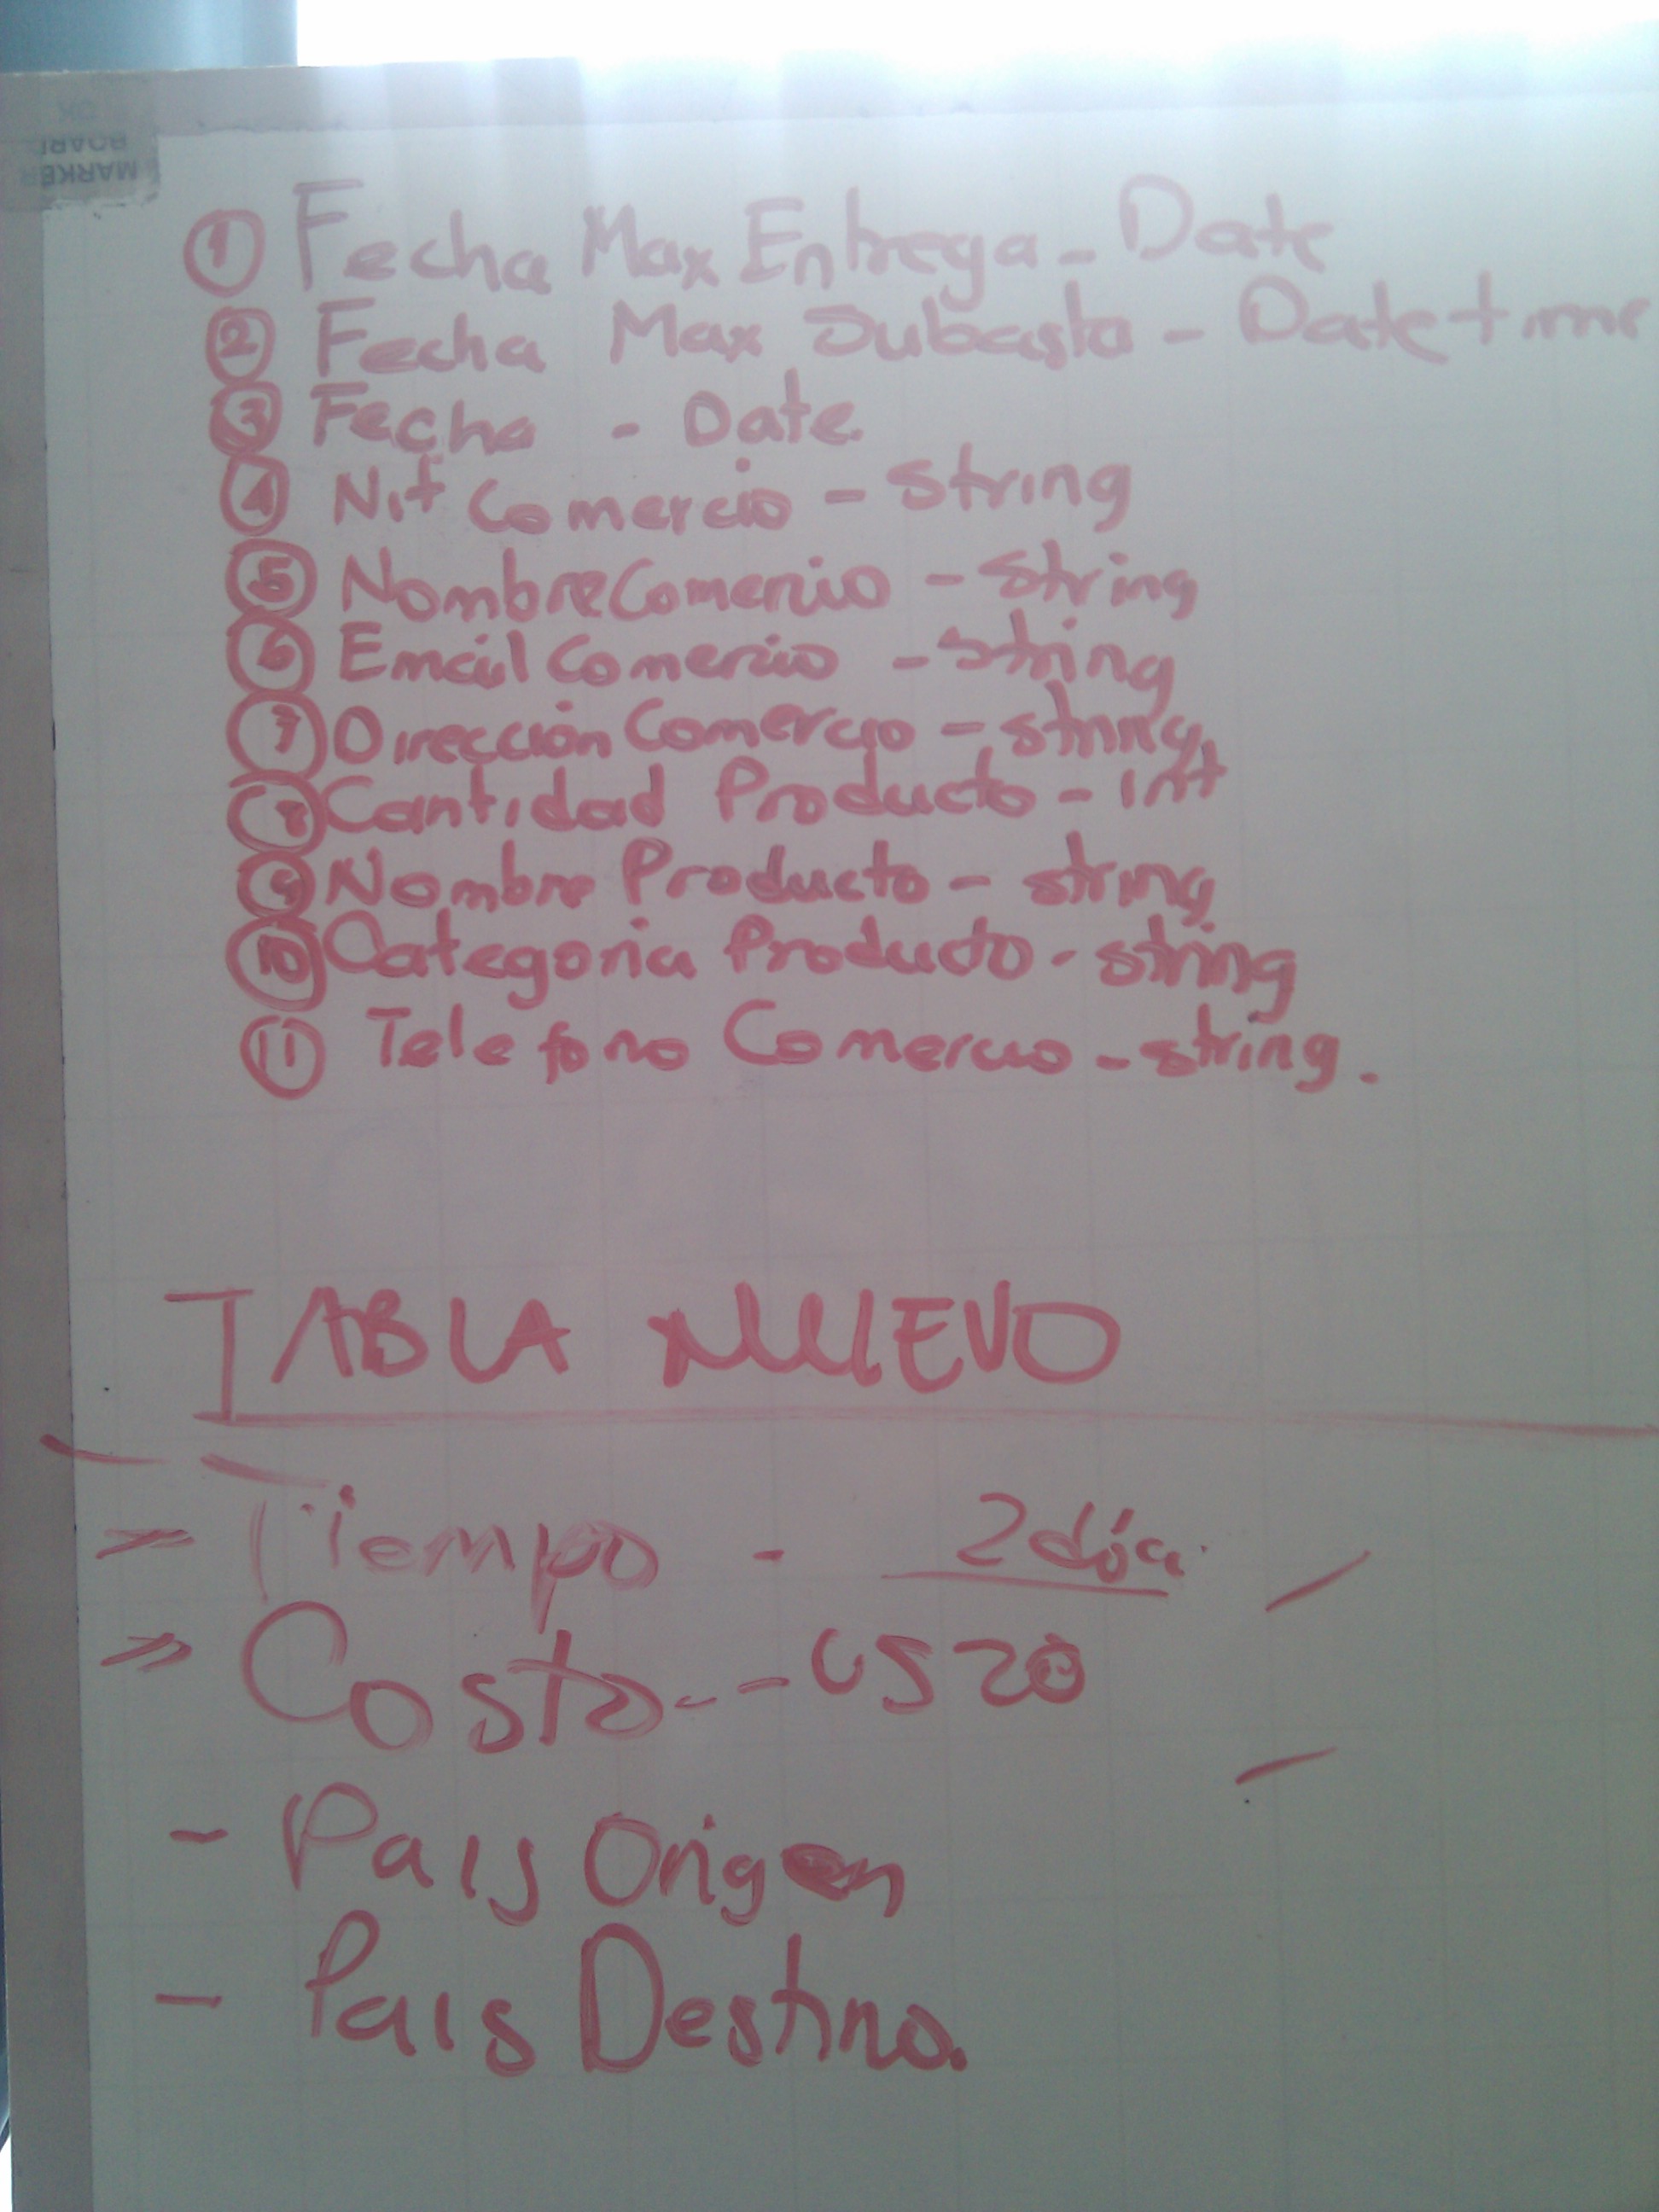 OK
BOARD
MARKER
① Fecha Max Entrega - Date
② Fecha Max Subasta - Datetime
③ Fecha - Date.
④ Nit Comercio - string
⑤ NombreComercio - string
⑥ Email Comercio - string
⑦ Dirección Comercio - string
⑧ Cantidad Producto - int
⑨ Nombre Producto - string
⑩ Categoria Producto - string
⑪ Telefono Comercio - string.
TABLA NUEVO
Tiempo - 2día
Costo - - US 20
- Pais Origen
- Pais Destino.